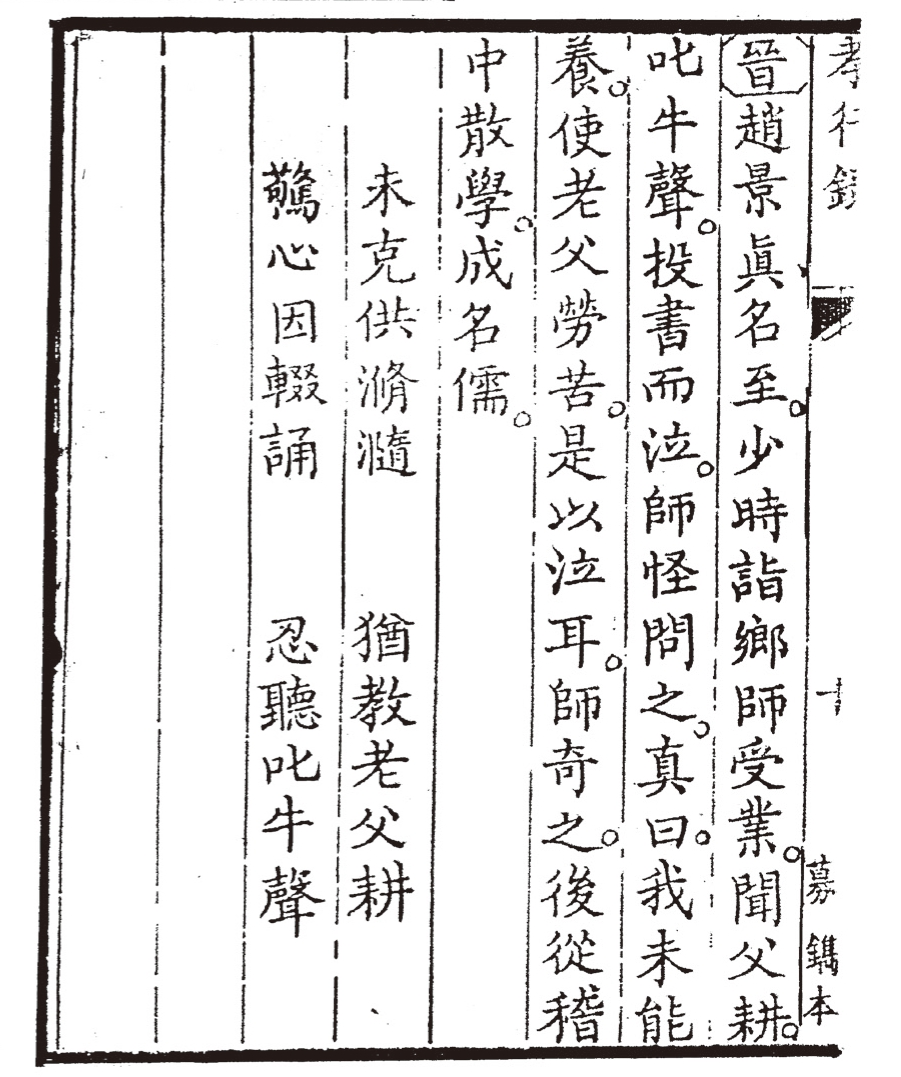 孝行錄
十
募鐫本
晉趙景眞名至。少時詣鄉師受業。聞父耕。
叱牛聲。投書而泣。師怪問之。真曰。我未能
養。使老父勞苦。是以泣耳。師奇之。後從稽
中散學。成名儒。
未克供滫瀡 猶教老父耕
驚心因輟誦 忍聽叱牛聲